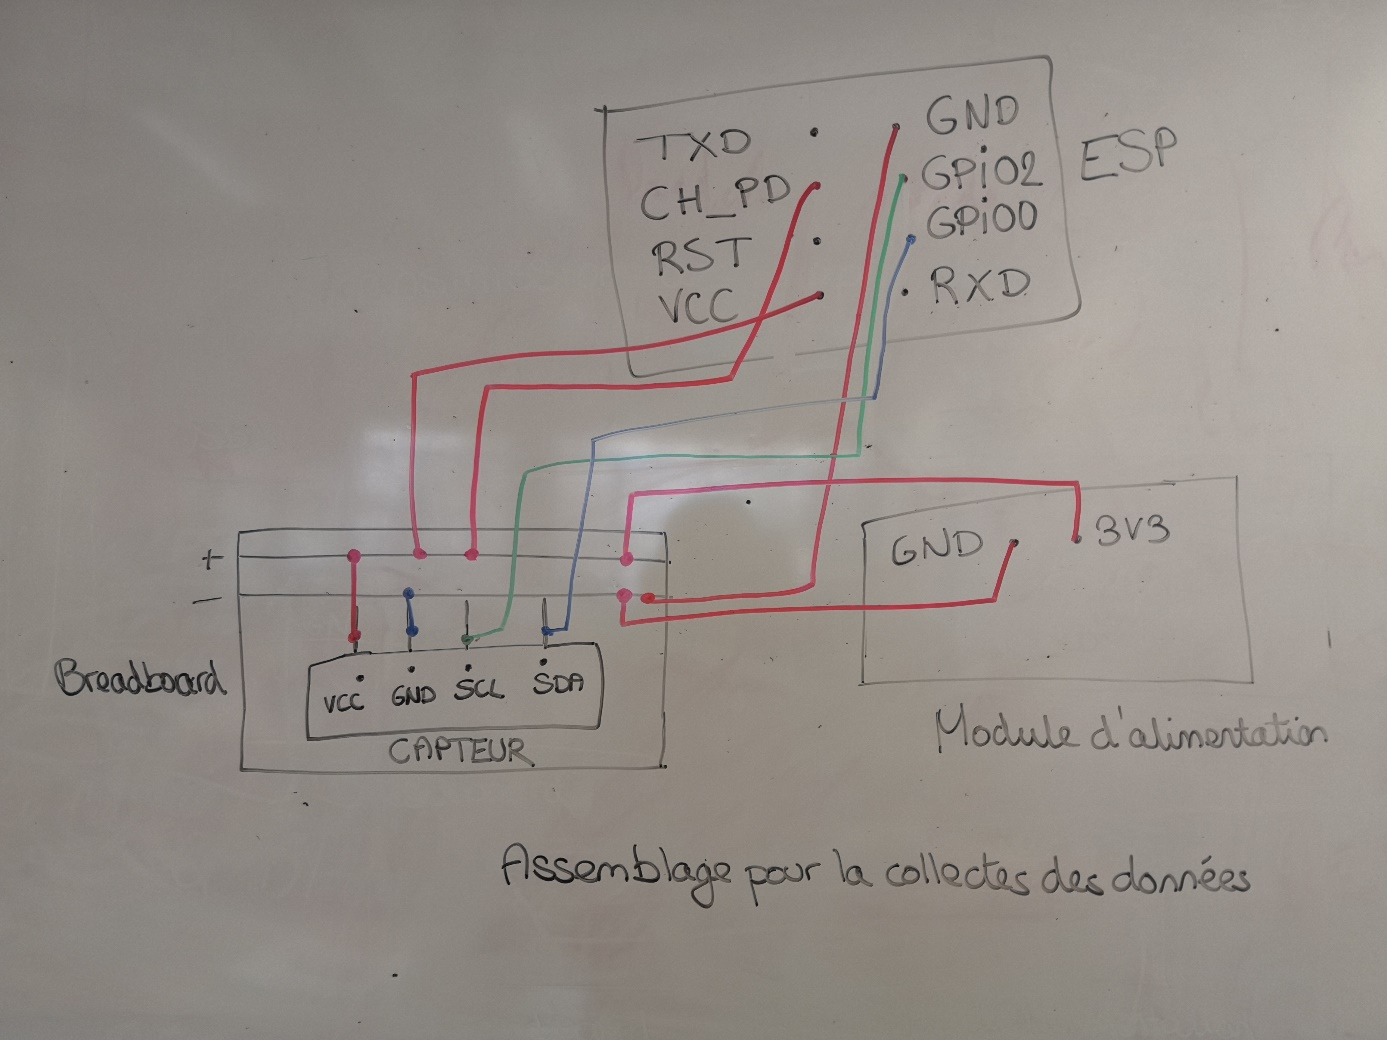 TXD
CH_PD
RST
VCC
GND
GPiO2
GPiO0
RXD
ESP
+
-
GND
3V3
Breadboard
VCC
GND
SCL
SDA
CAPTEUR
Module d'alimentation
Assemblage pour la collectes des données